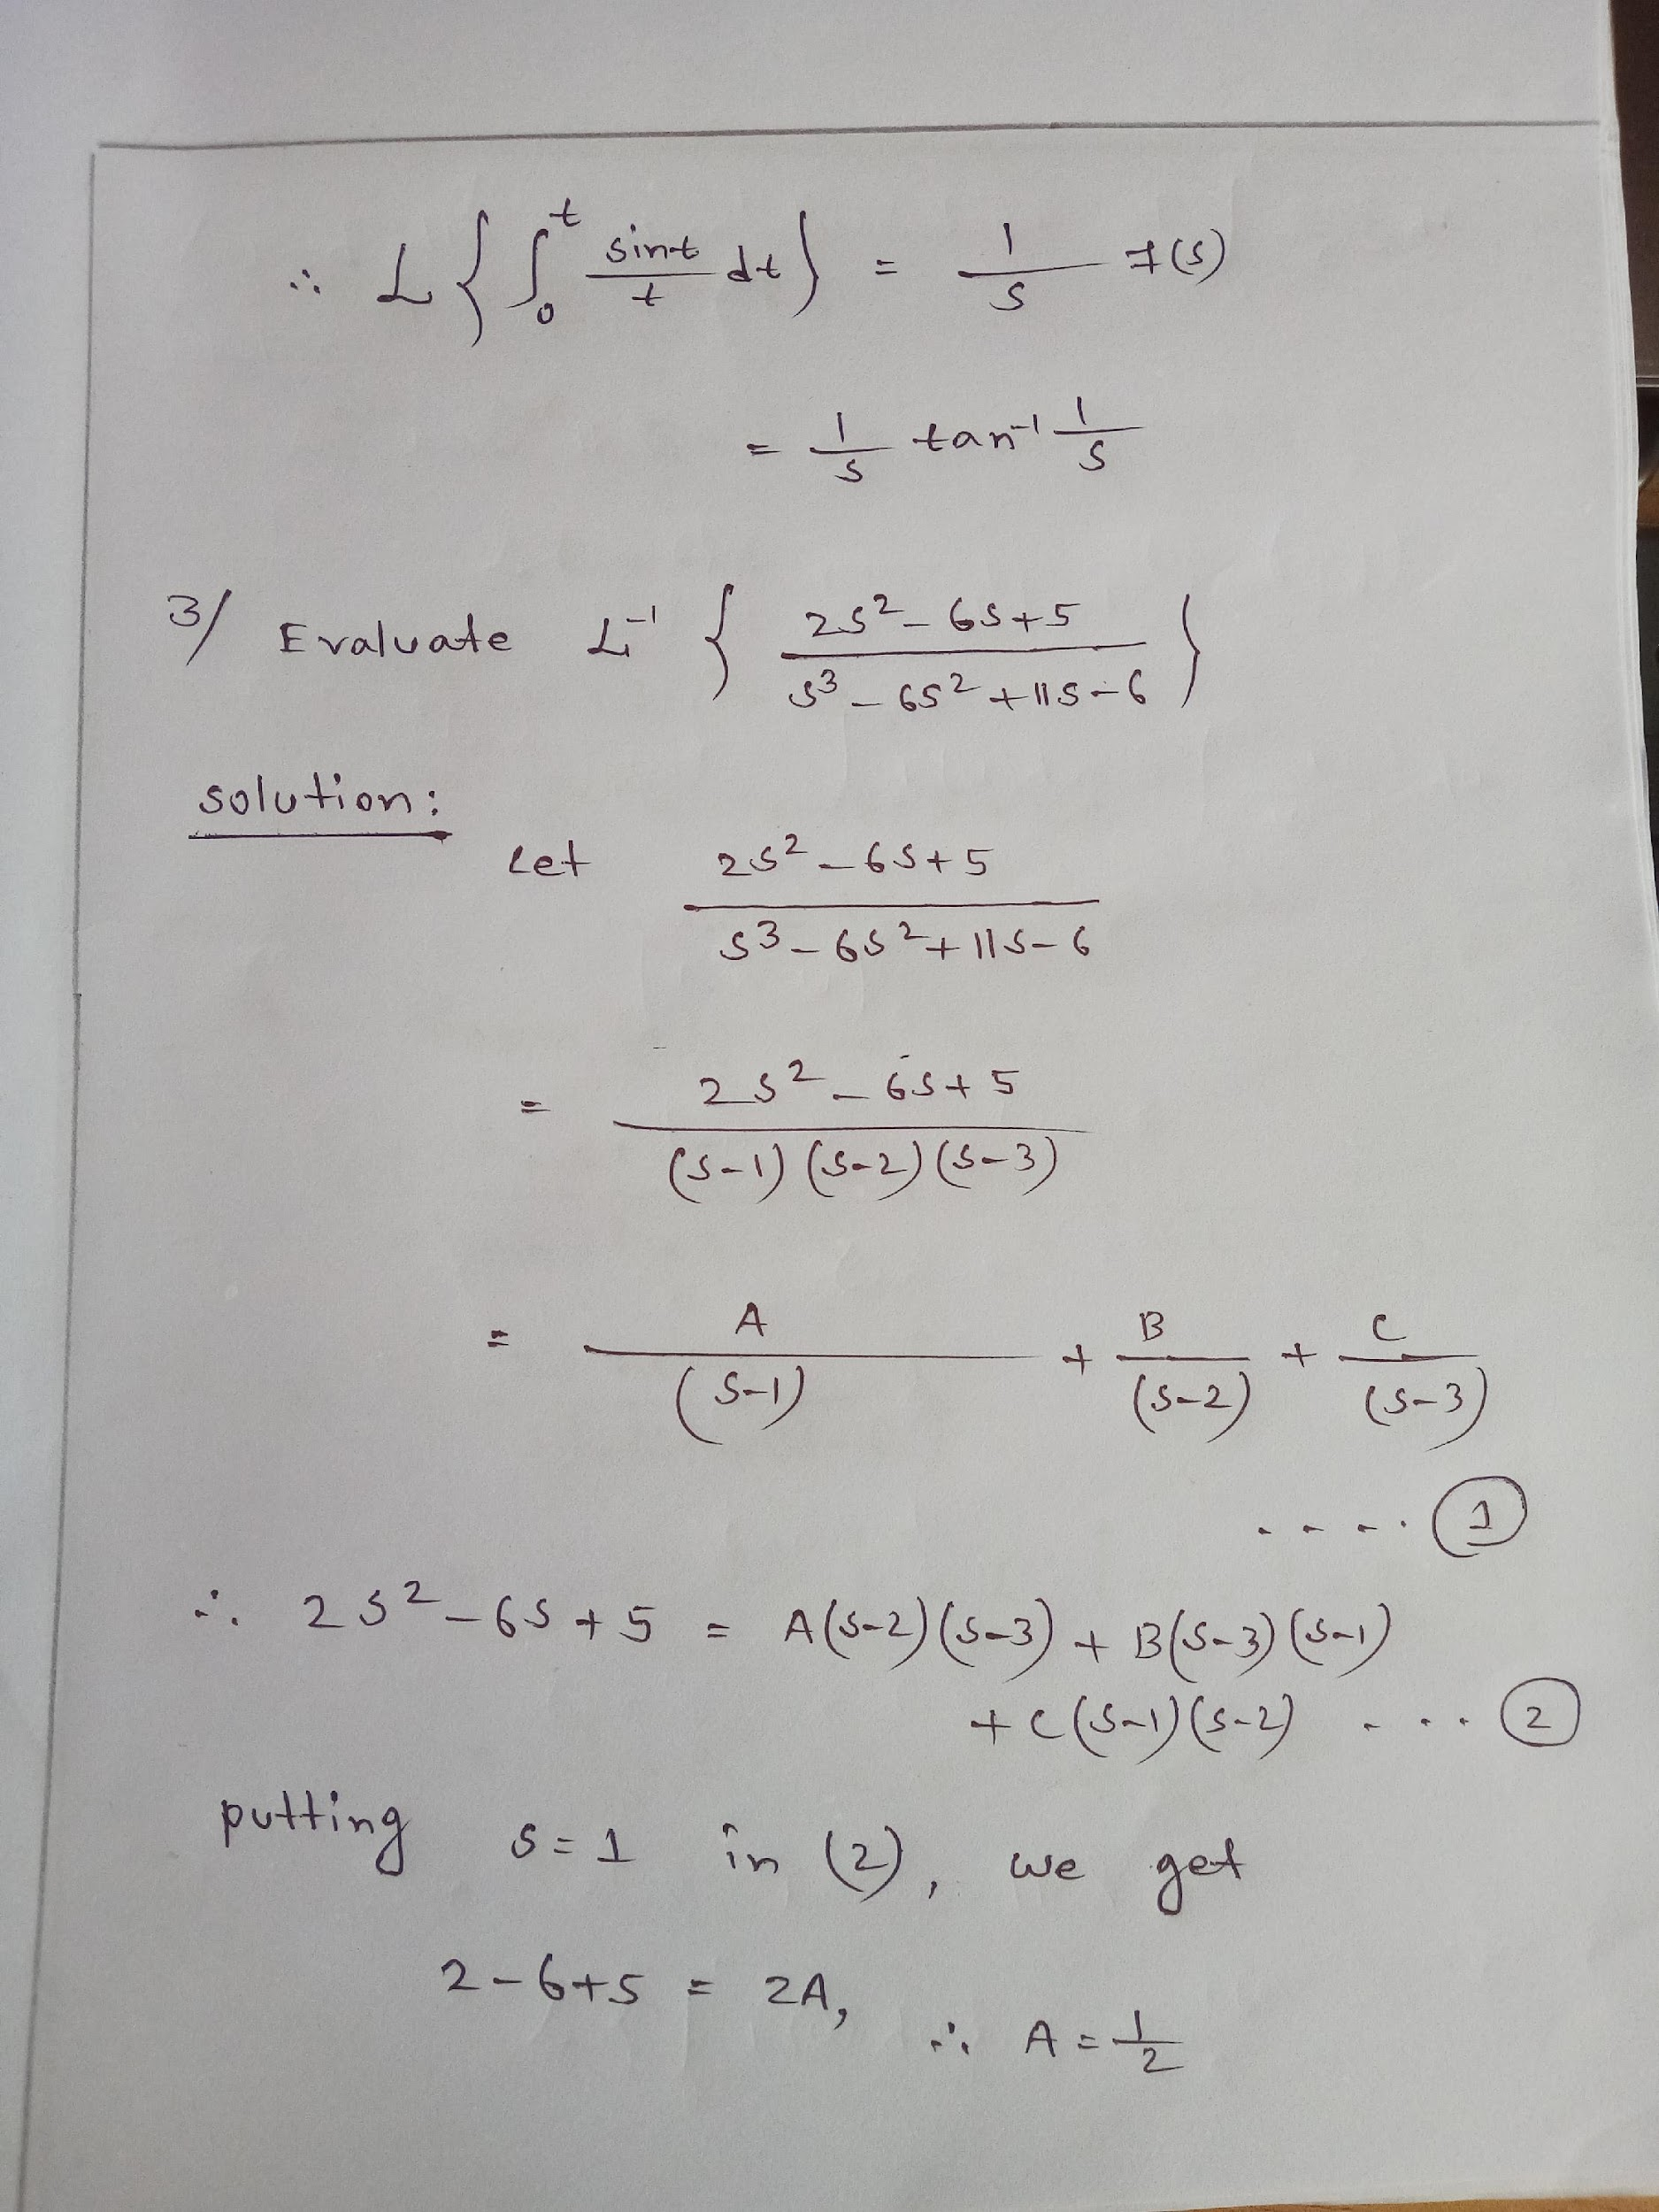 ∴ L { ∫₀ᵗ sint/t dt } = 1/s f(s)
= 1/s tan⁻¹ 1/s
3/ Evaluate L⁻¹ { (2s² - 6s + 5)/(s³ - 6s² + 11s - 6) }
solution:
Let (2s² - 6s + 5)/(s³ - 6s² + 11s - 6)
= (2s² - 6s + 5)/((s-1)(s-2)(s-3))
= A/(s-1) + B/(s-2) + C/(s-3)
.... ①
∴ 2s² - 6s + 5 = A(s-2)(s-3) + B(s-3)(s-1)
+ C(s-1)(s-2) .... ②
putting s=1 in (2), we get
2 - 6 + 5 = 2A, ∴ A = 1/2